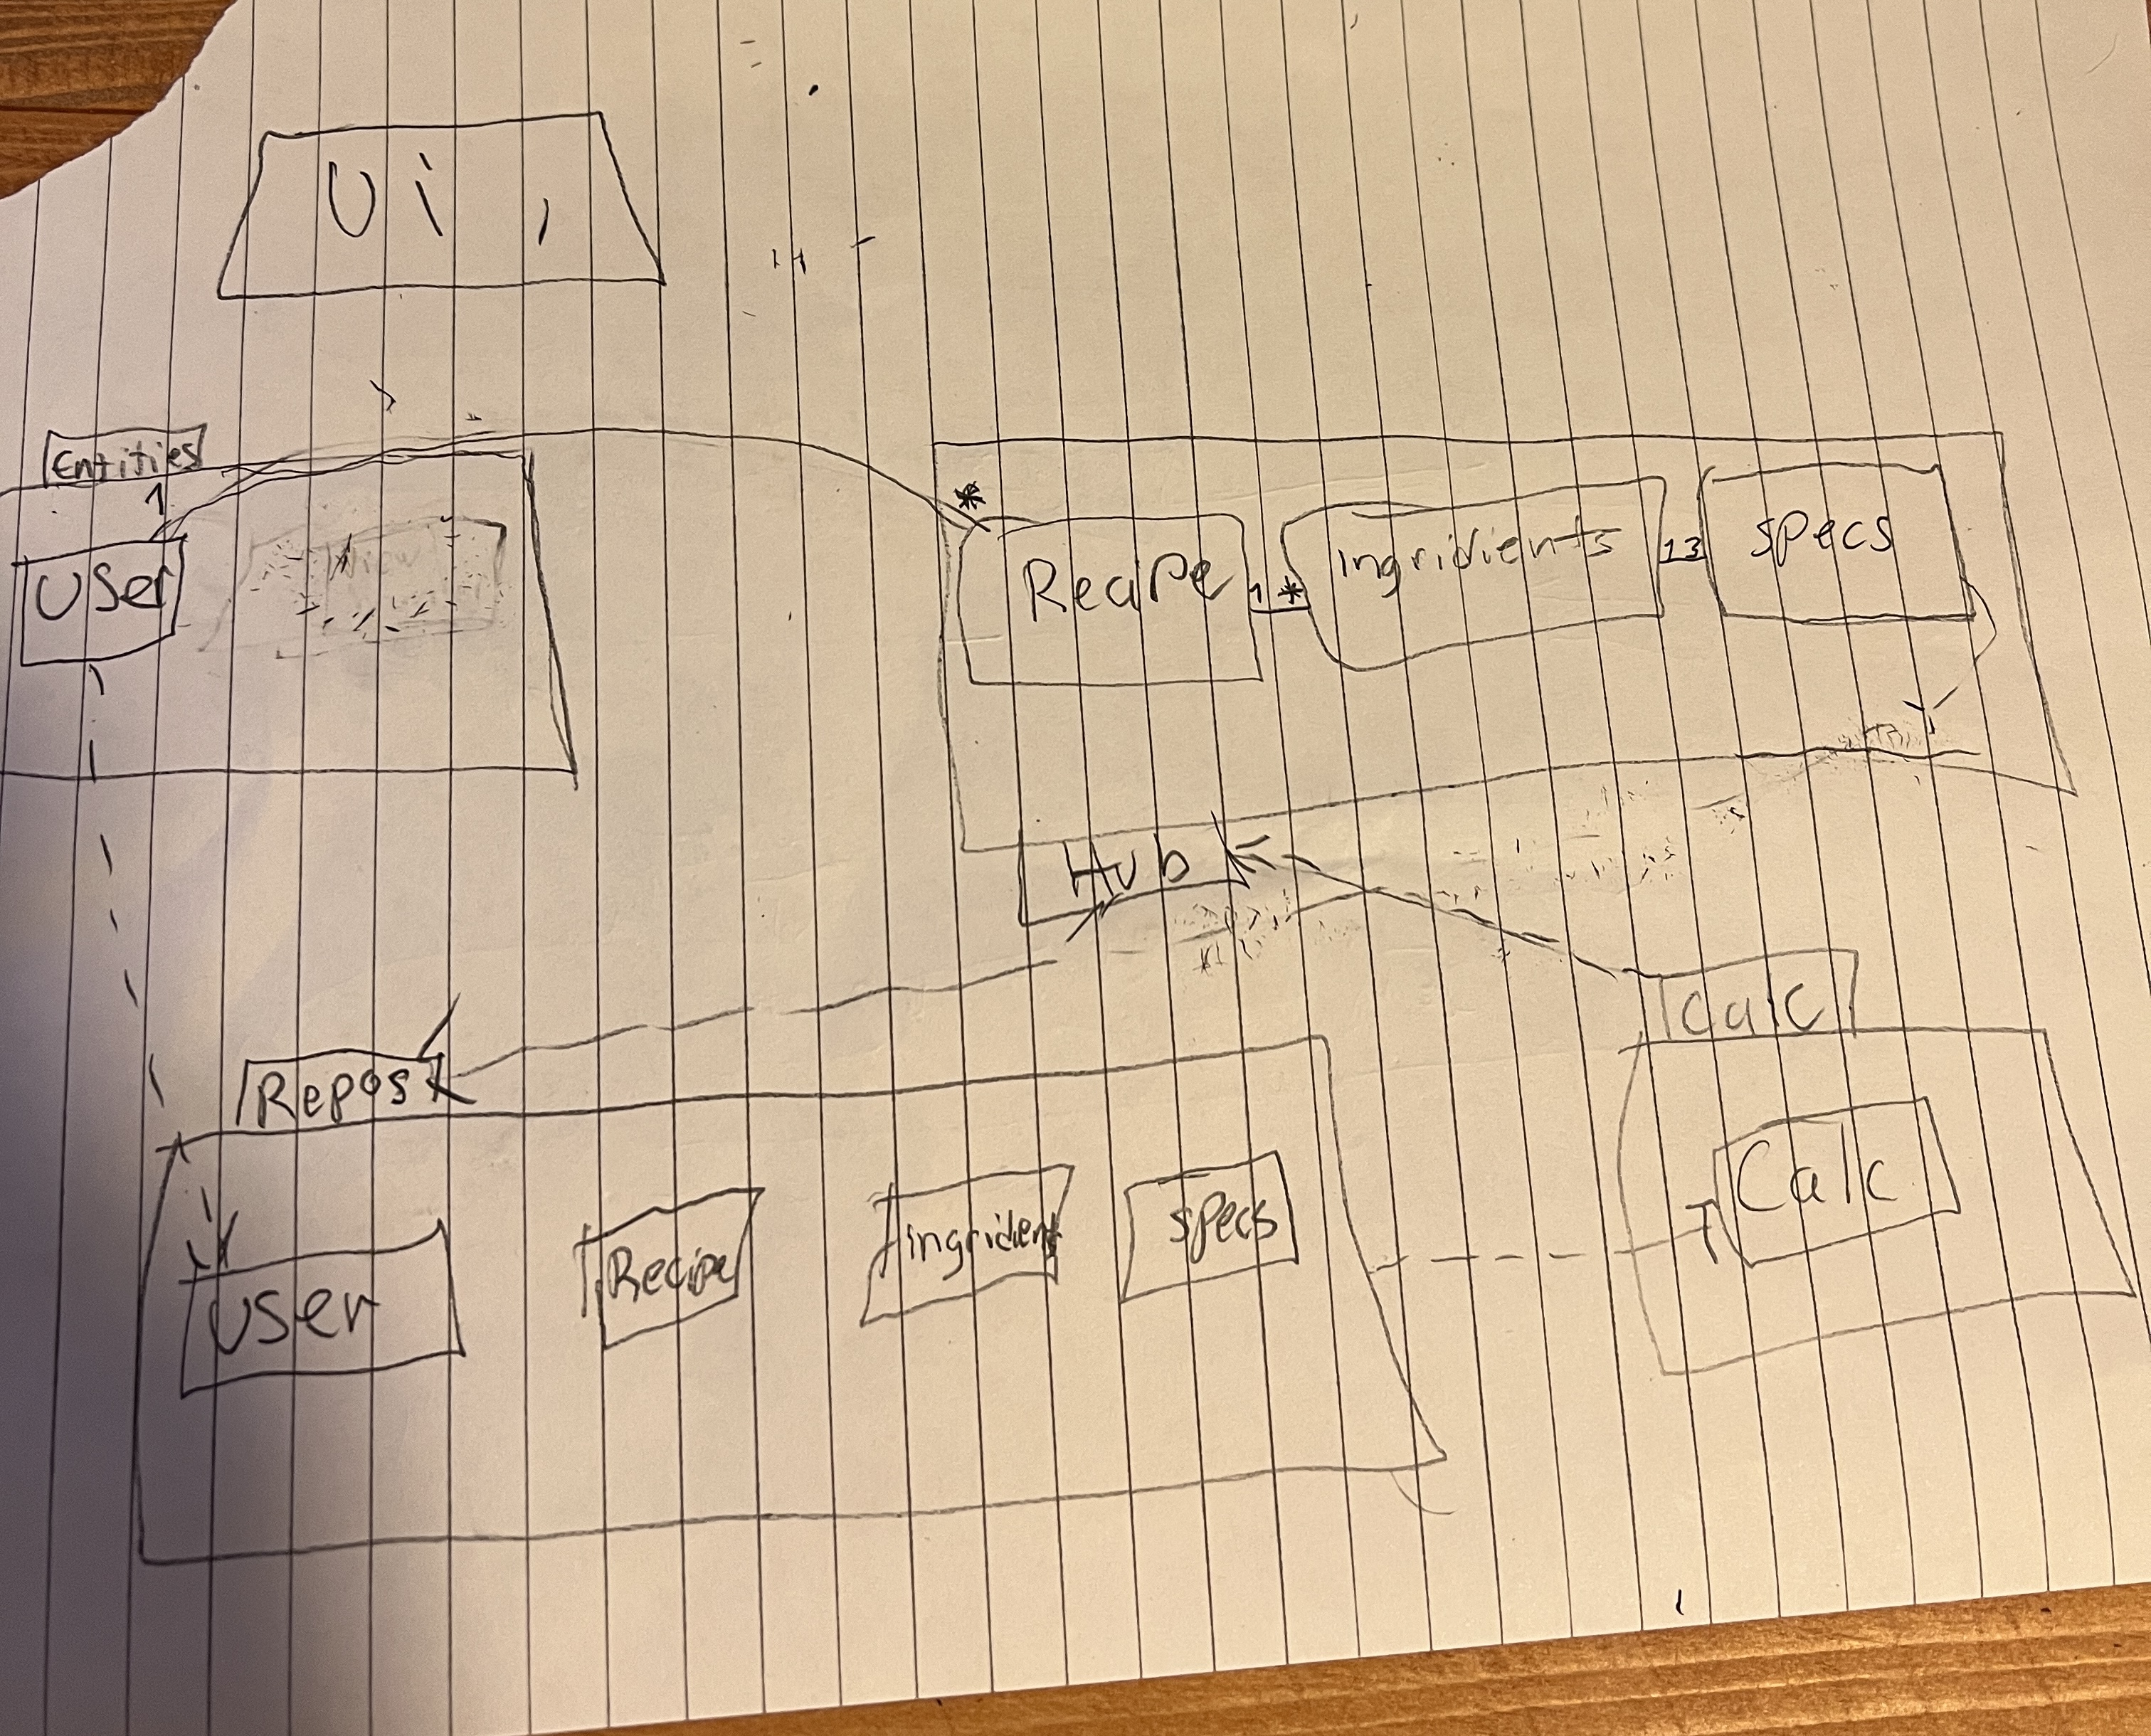 Ui,
Entities
1
User
*
Recipe
1 *
ingridients
13
specs
Hub
Repost
calc
User
Recipe
ingridient
specs
Calc